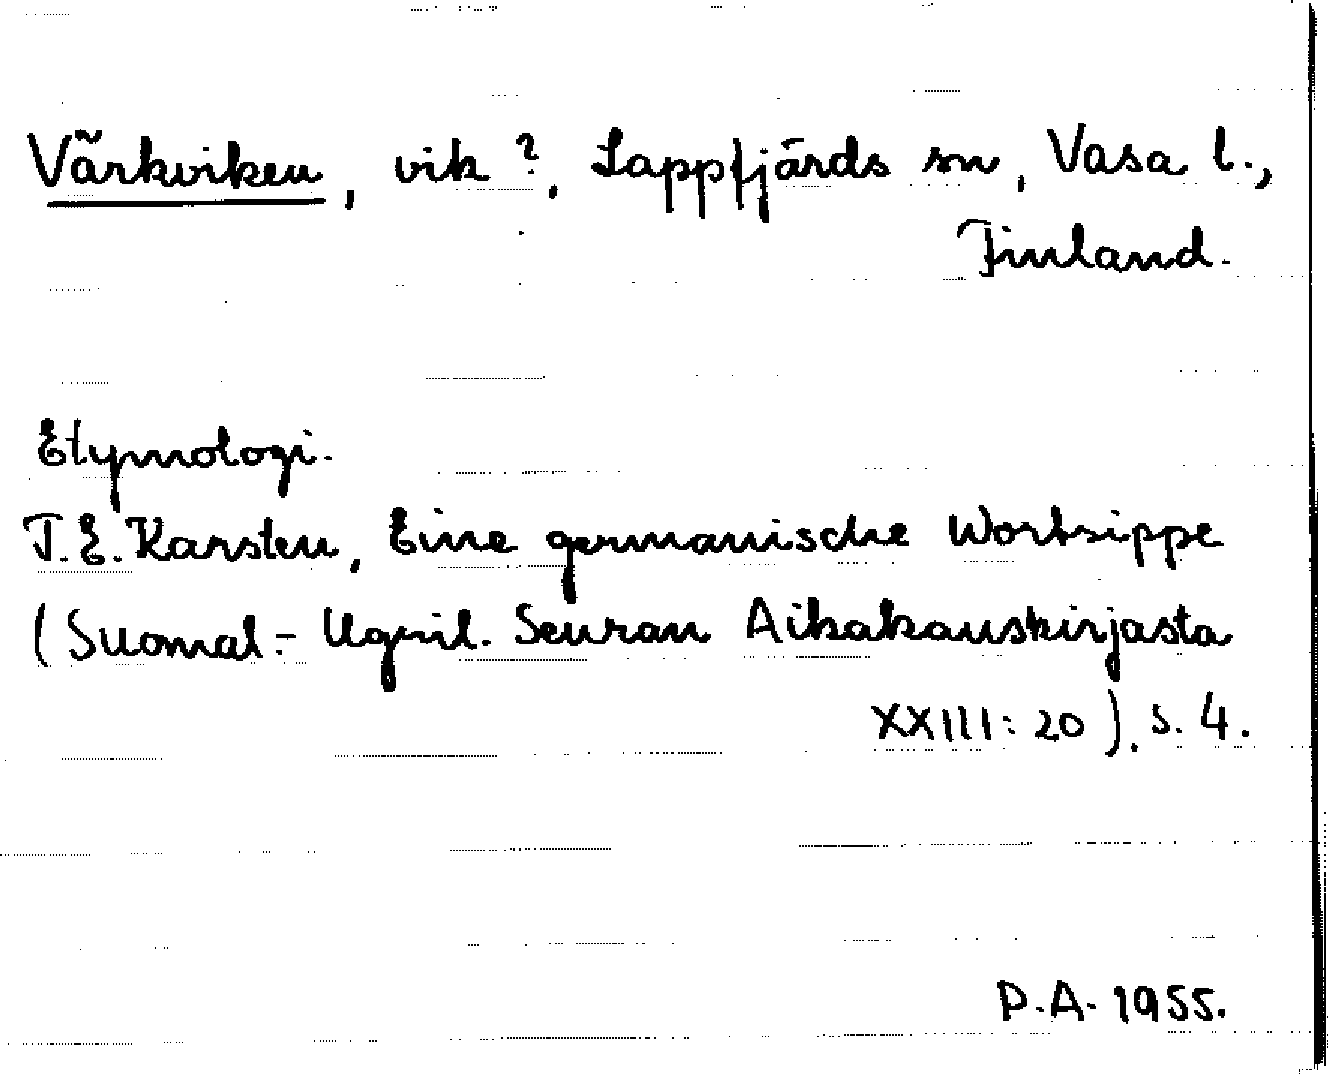 Värkviken, vik?, Lappfjärds sn, Vasa l.,
Finland.
Etymologi.
T.E. Karsten, Eine germanische Wortsippe
(Suomal.-Ugril. Seuran Aikakauskirjasta
XXIII:20). s. 4.
P.A. 1955.